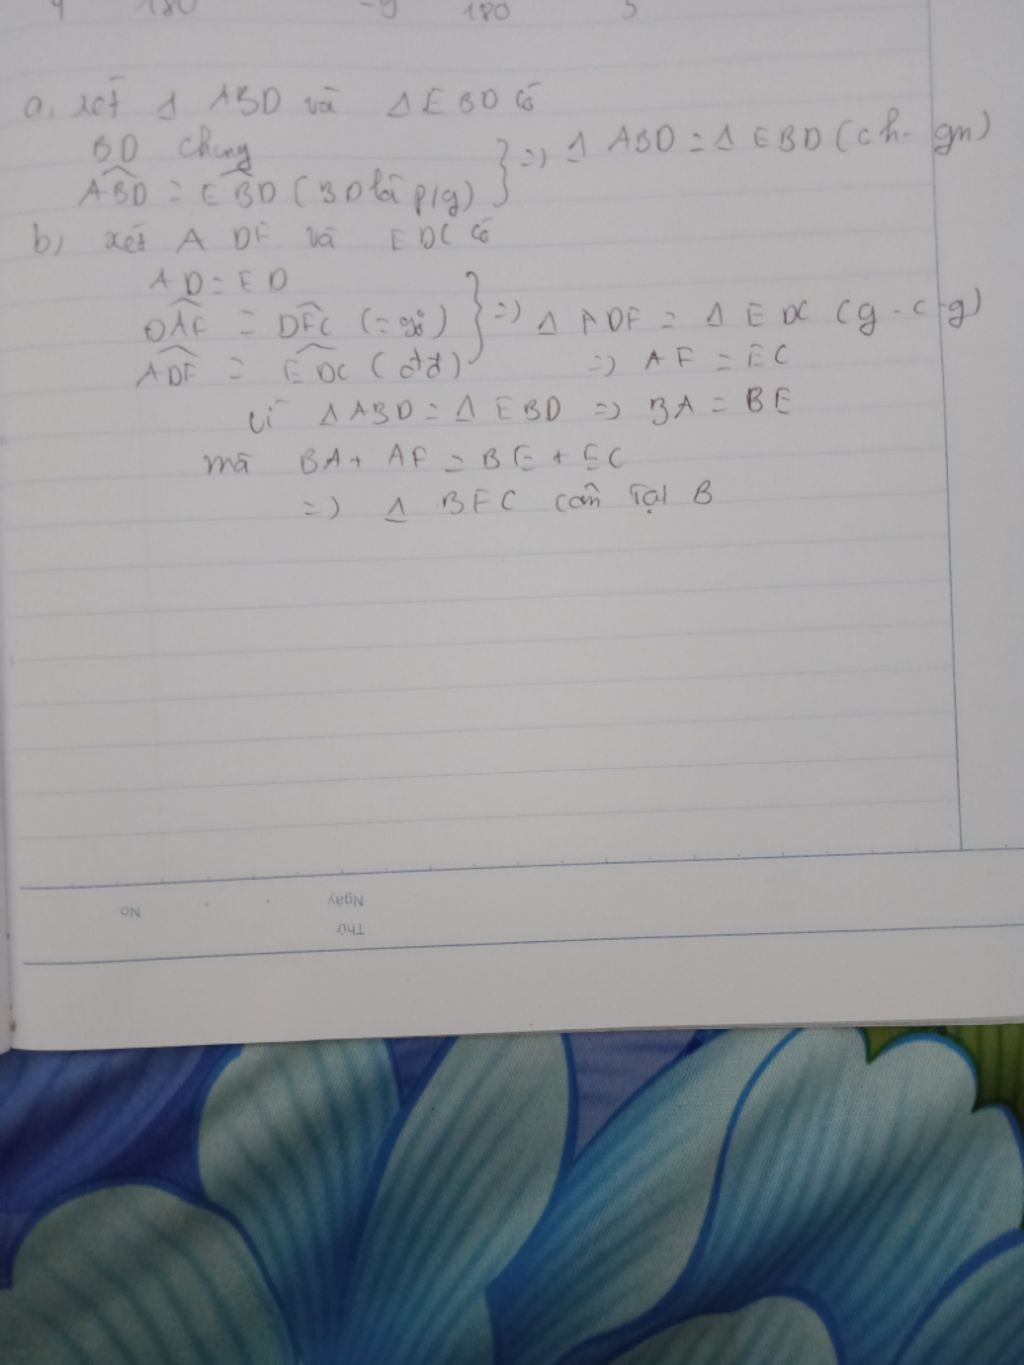 180 -9 180 5
a, xét Δ ABD và Δ EBD có
BD chung
ABD = EBD (BD là p/g) } => Δ ABD = Δ EBD (ch-gn)
b, xét A DF và EDC có
AD = ED
DAF = DEC (= 90) } => Δ ADF = Δ EDC (g-c-g)
ADF = EDC (đđ) => AF = EC
Vì Δ ABD = Δ EBD => BA = BE
mà BA + AF = BE + EC
=> Δ BFC cân tại B
No.
Ngày
Thứ